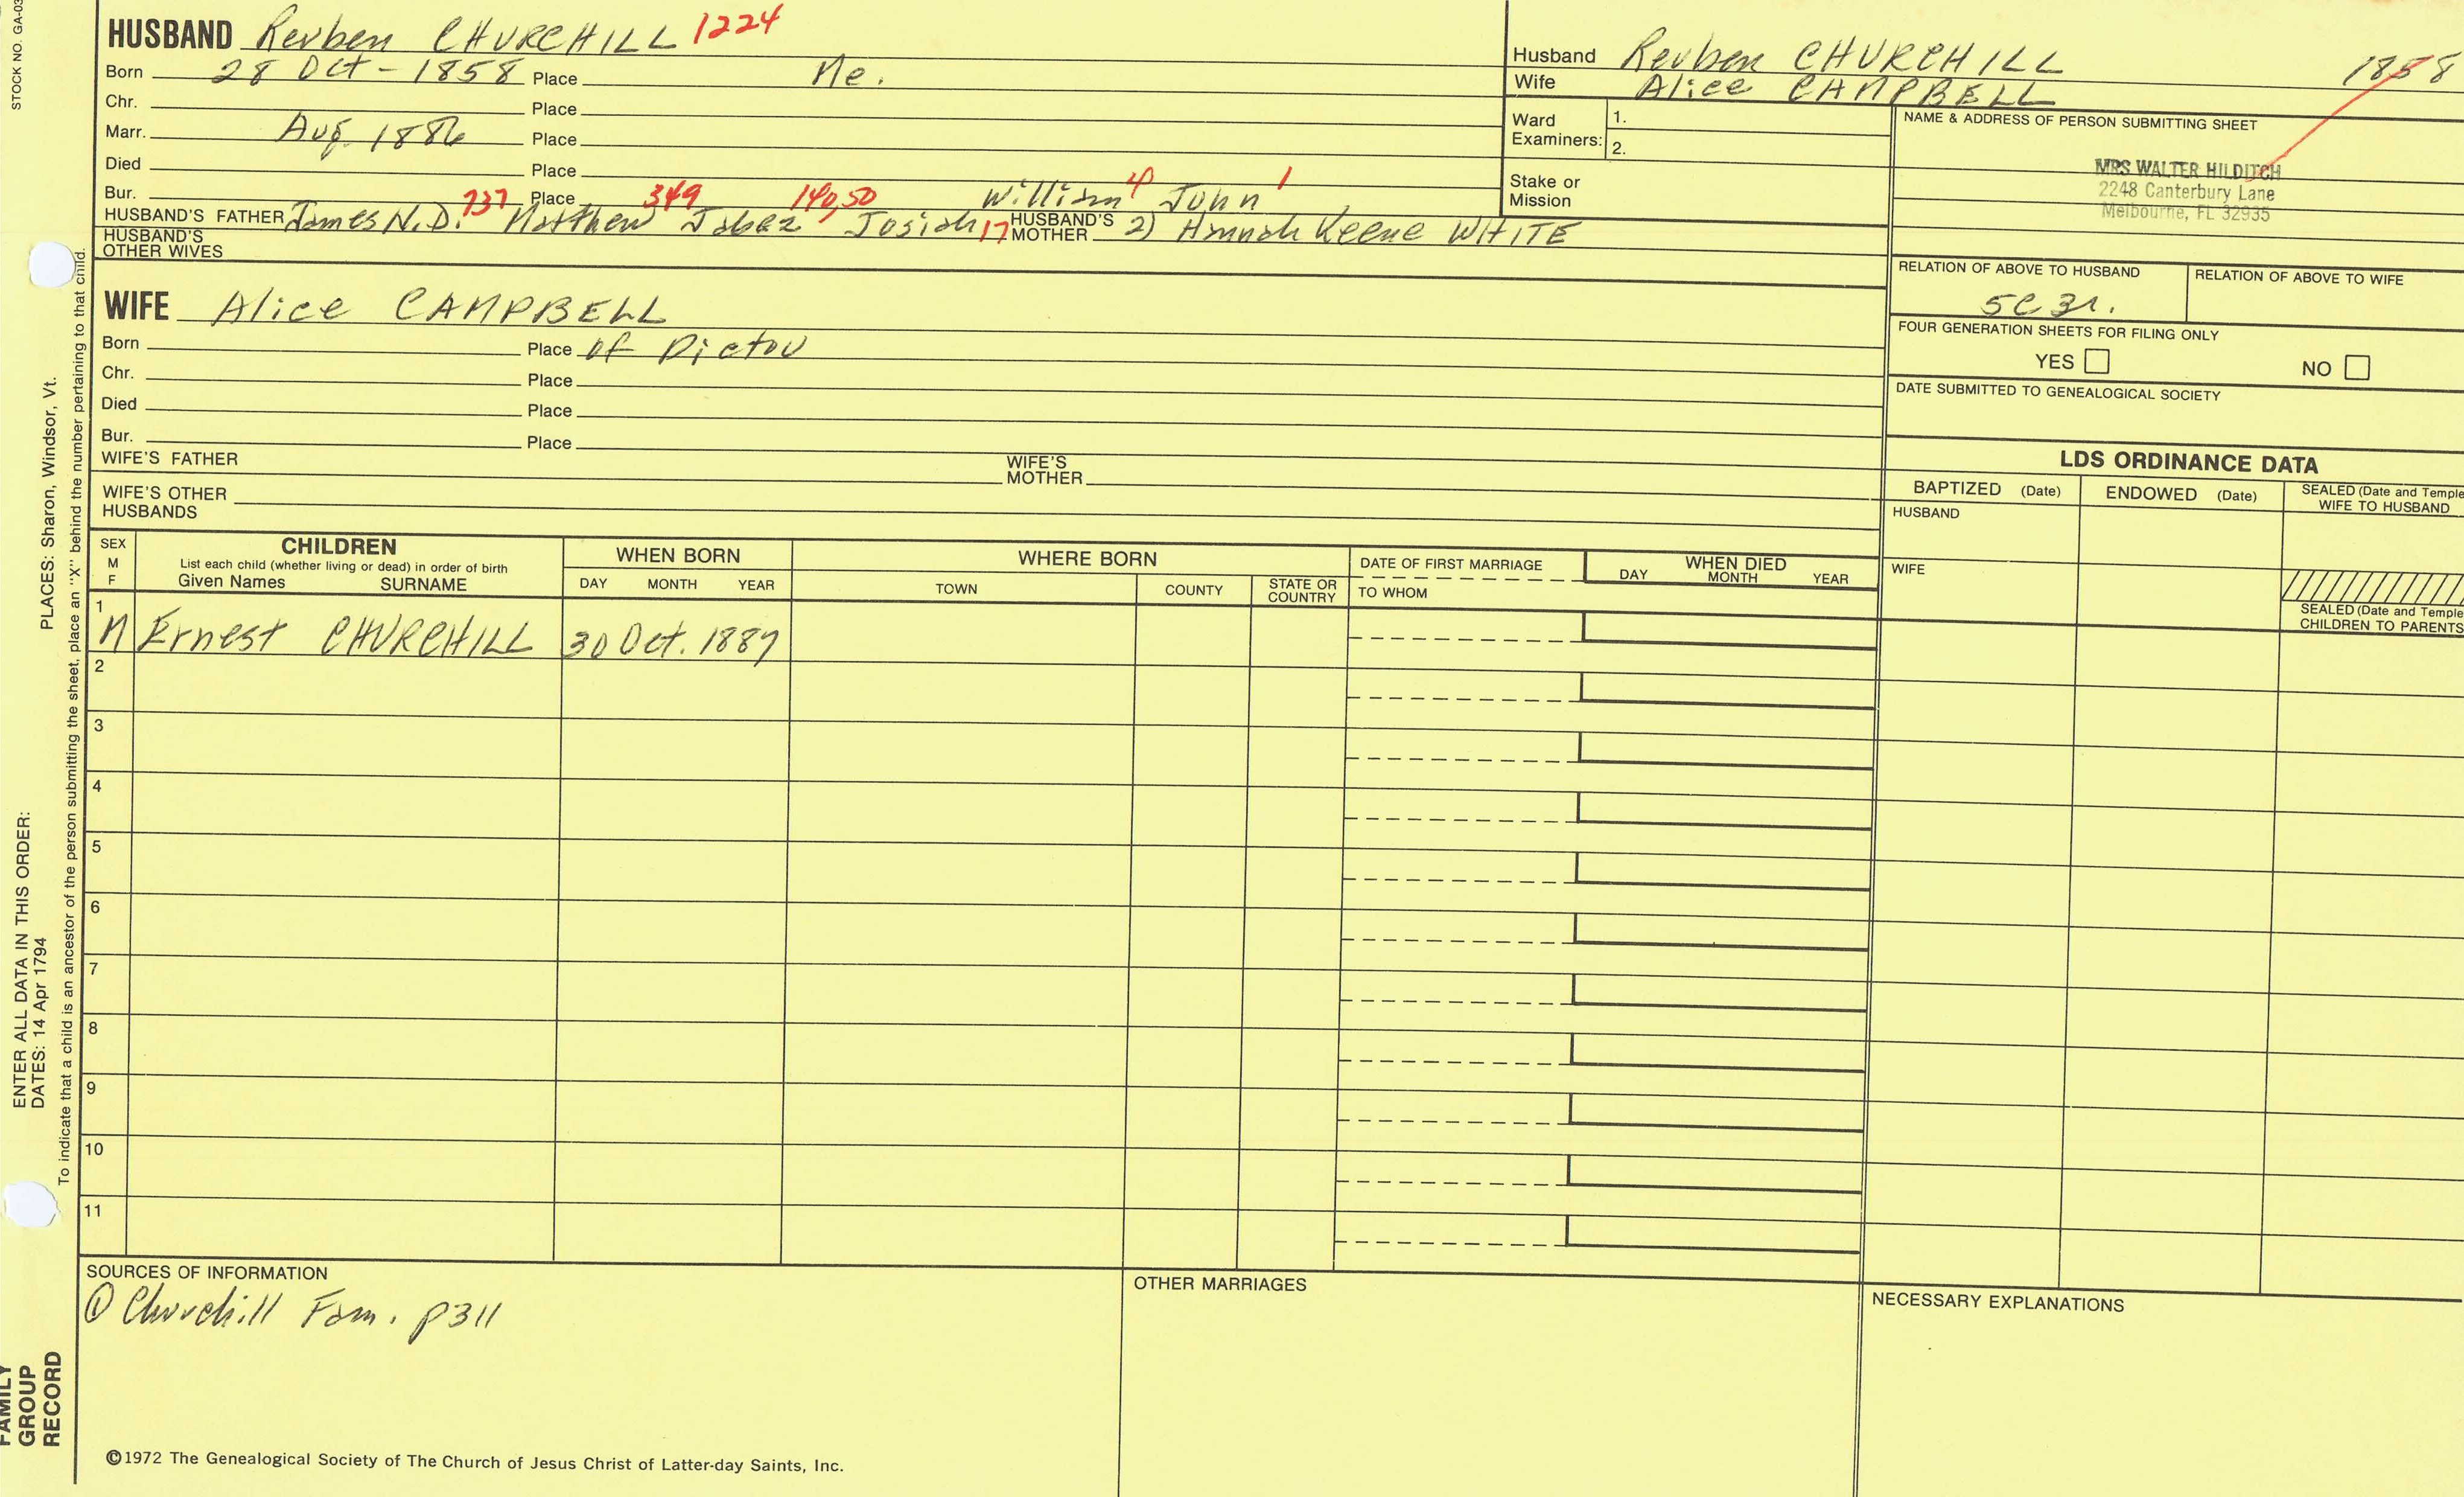 STOCK NO. GA-03
HUSBAND Reuben CHURCHILL 1224
Born 28 Oct - 1858 Place Me.
Chr. Place
Marr. Aug. 1886 Place
Died Place
Bur. Place
737 349 140,50 William 4 John 1
HUSBAND'S FATHER James N.D. Matthew Jabez Josiah 17 HUSBAND'S MOTHER 2) Hannah Keene WHITE
HUSBAND'S OTHER WIVES
Husband Reuben CHURCHILL 1858
Wife Alice CAMPBELL
Ward Examiners: 1.
2.
Stake or Mission
NAME & ADDRESS OF PERSON SUBMITTING SHEET
MRS WALTER HILDITCH
2248 Canterbury Lane
Melbourne, FL 32935
RELATION OF ABOVE TO HUSBAND RELATION OF ABOVE TO WIFE
5C 3r.
FOUR GENERATION SHEETS FOR FILING ONLY
YES NO
DATE SUBMITTED TO GENEALOGICAL SOCIETY
WIFE Alice CAMPBELL
Born Place of Pictou
Chr. Place
Died Place
Bur. Place
WIFE'S FATHER WIFE'S MOTHER
WIFE'S OTHER HUSBANDS
LDS ORDINANCE DATA
BAPTIZED (Date) ENDOWED (Date) SEALED (Date and Temple
WIFE TO HUSBAND
HUSBAND
WIFE
SEALED (Date and Temple
CHILDREN TO PARENTS
SEX M F
CHILDREN
List each child (whether living or dead) in order of birth
Given Names SURNAME
WHEN BORN
DAY MONTH YEAR
WHERE BORN
TOWN COUNTY STATE OR COUNTRY
DATE OF FIRST MARRIAGE
TO WHOM
WHEN DIED
DAY MONTH YEAR
1 M Ernest CHURCHILL 30 Oct. 1887
2
3
4
5
6
7
8
9
10
11
SOURCES OF INFORMATION
① Churchill Fam. p311
OTHER MARRIAGES
NECESSARY EXPLANATIONS
©1972 The Genealogical Society of The Church of Jesus Christ of Latter-day Saints, Inc.
FAMILY GROUP RECORD
ENTER ALL DATA IN THIS ORDER:
DATES: 14 Apr 1794
PLACES: Sharon, Windsor, Vt.
To indicate that a child is an ancestor of the person submitting the sheet, place an "X" behind the number pertaining to that child.